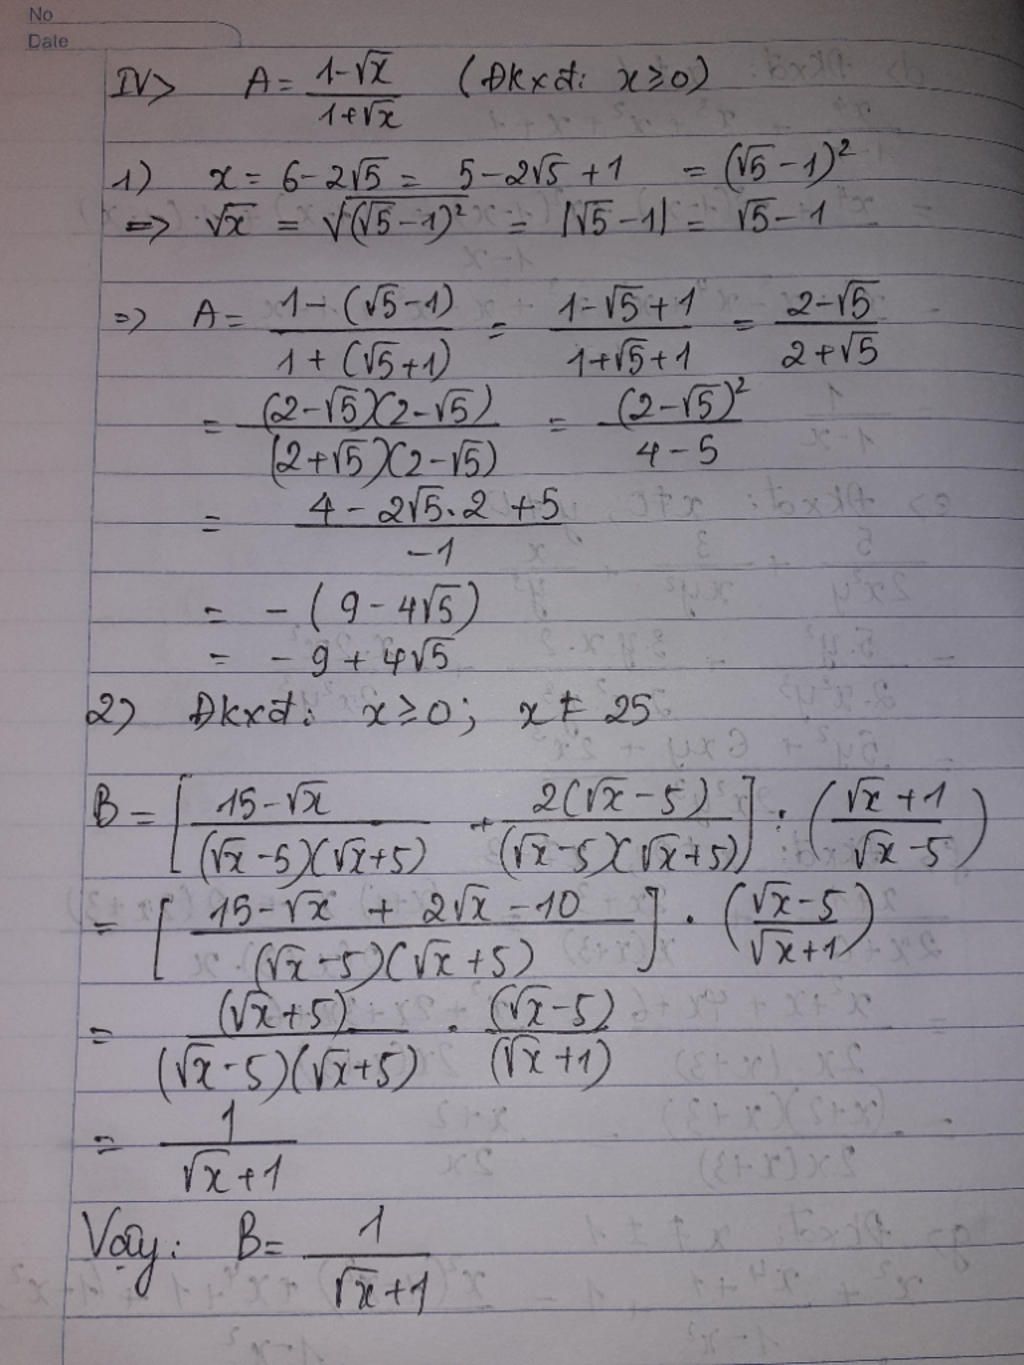 No
Date
IV> A = (1-√x)/(1+√x) (Đkxđ: x ≥ 0)
1) x = 6-2√5 = 5-2√5 +1 = (√5 -1)²
=> √x = √((√5-1)²) = |√5-1| = √5-1
=> A = (1-(√5-1))/(1+(√5+1)) = (1-√5+1)/(1+√5+1) = (2-√5)/(2+√5)
= ((2-√5)(2-√5))/((2+√5)(2-√5)) = (2-√5)²/(4-5)
= (4-2√5.2+5)/(-1)
= -(9-4√5)
= -9+4√5
2) Đkxđ: x ≥ 0; x ≠ 25
B = [(15-√x)/((√x-5)(√x+5)) + (2(√x-5))/((√x-5)(√x+5))] : ((√x+1)/(√x-5))
= [(15-√x + 2√x-10)/((√x-5)(√x+5))] . ((√x-5)/(√x+1))
= (√x+5)/((√x-5)(√x+5)) . (√x-5)/(√x+1)
= 1/(√x+1)
Vậy: B = 1/(√x+1)